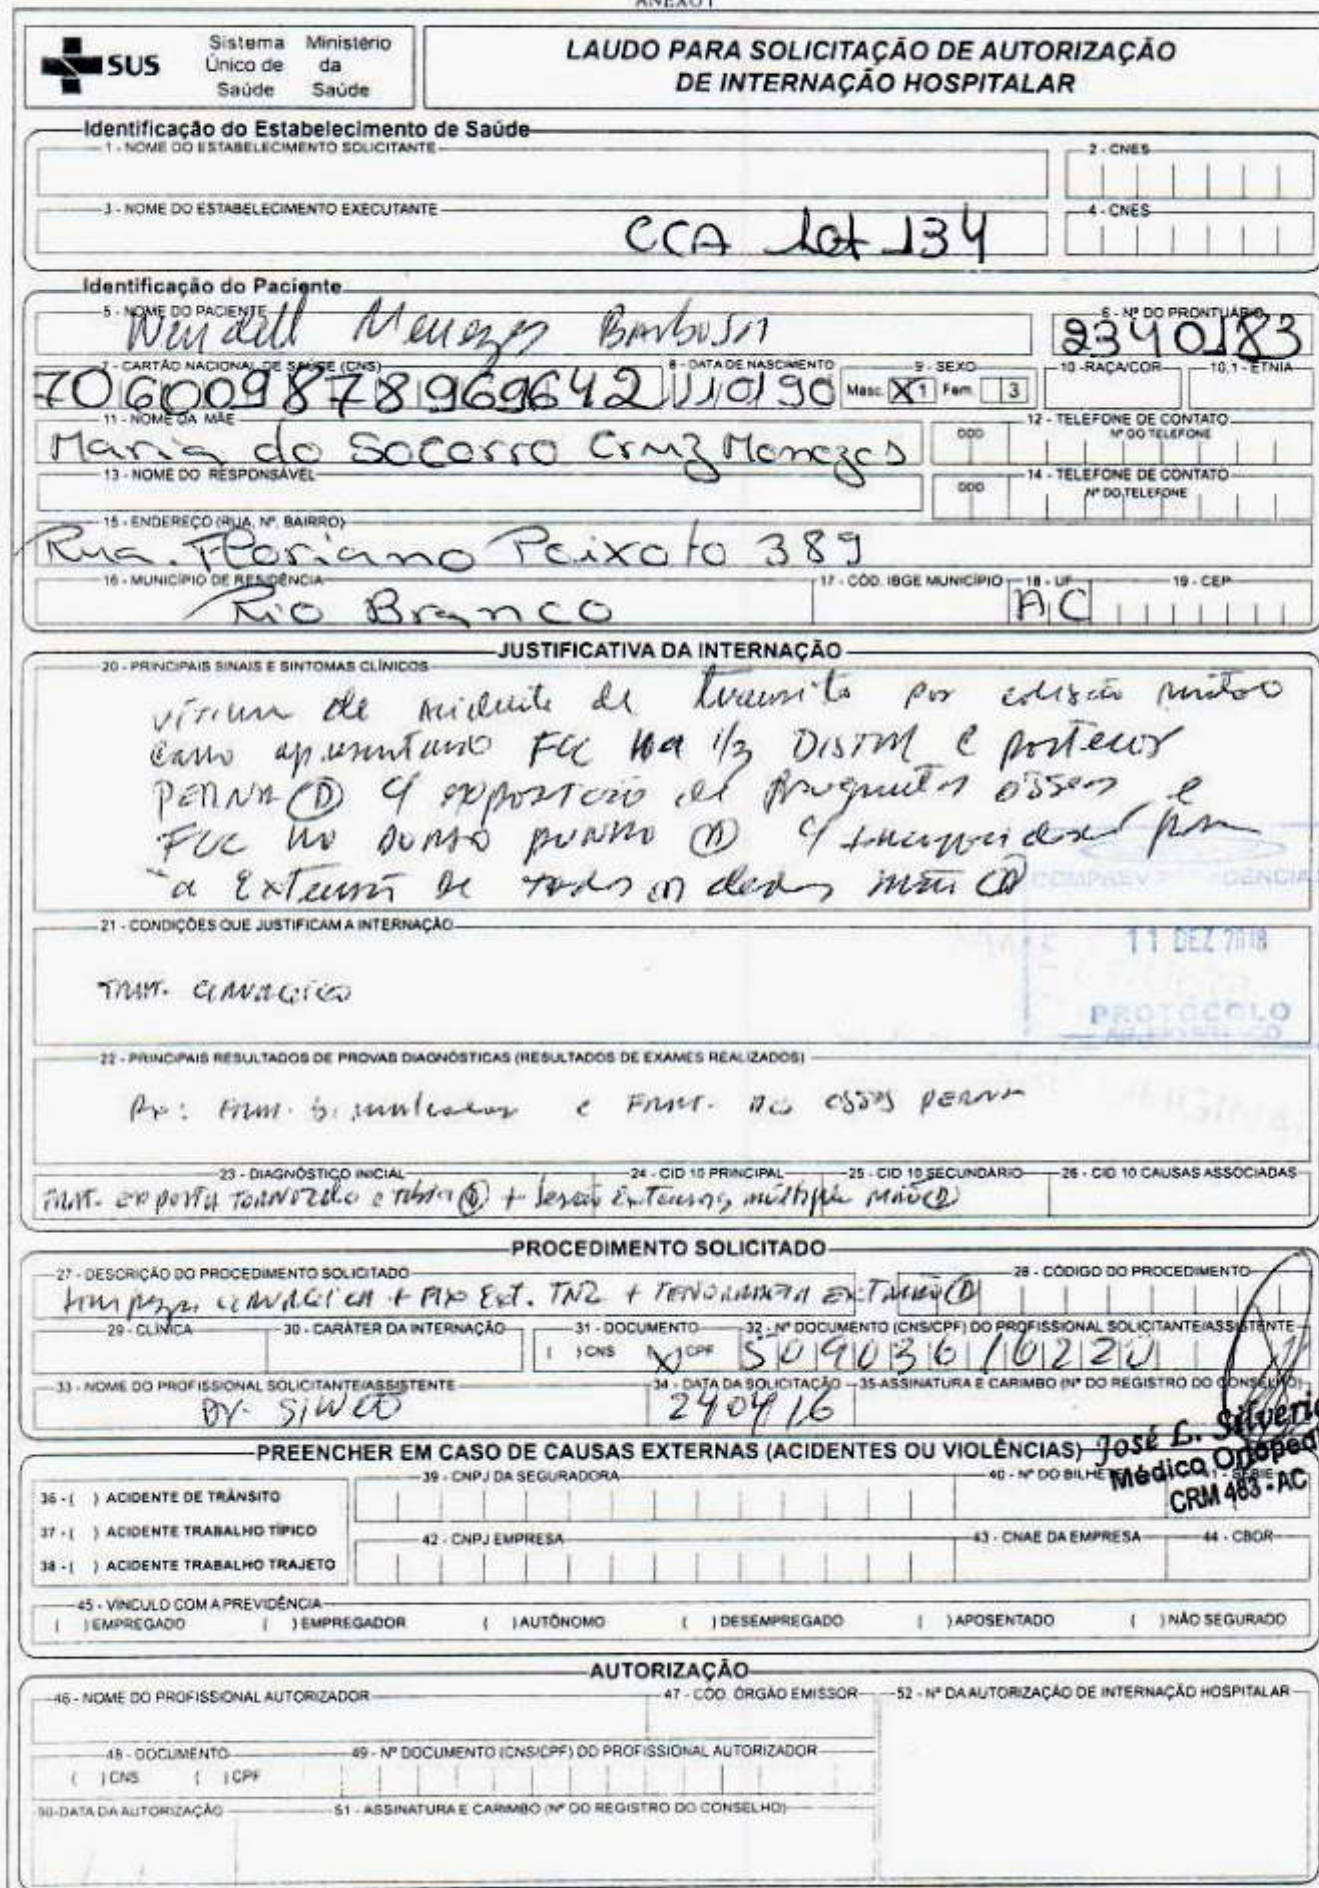 ANEXO I
SUS
Sistema Único de Saúde
Ministério da Saúde
LAUDO PARA SOLICITAÇÃO DE AUTORIZAÇÃO
DE INTERNAÇÃO HOSPITALAR
Identificação do Estabelecimento de Saúde
1 - NOME DO ESTABELECIMENTO SOLICITANTE
2 - CNES
3 - NOME DO ESTABELECIMENTO EXECUTANTE
4 - CNES
CCA Lot 134
Identificação do Paciente
5 - NOME DO PACIENTE
6 - Nº DO PRONTUÁRIO
Wendell Menezes Barbosa
2340183
7 - CARTÃO NACIONAL DE SAÚDE (CNS)
8 - DATA DE NASCIMENTO
9 - SEXO
10 - RAÇA/COR
10.1 - ETNIA
706009878969642
Masc. X 1 Fem. 3
11 - NOME DA MÃE
12 - TELEFONE DE CONTATO
Maria do Socorro Cruz Menezes
DDD Nº DO TELEFONE
13 - NOME DO RESPONSÁVEL
14 - TELEFONE DE CONTATO
DDD Nº DO TELEFONE
15 - ENDEREÇO (RUA, Nº, BAIRRO)
Rua. Floriano Peixoto 389
16 - MUNICÍPIO DE RESIDÊNCIA
17 - CÓD. IBGE MUNICÍPIO
18 - UF
19 - CEP
Rio Branco
AC
JUSTIFICATIVA DA INTERNAÇÃO
20 - PRINCIPAIS SINAIS E SINTOMAS CLÍNICOS
vítima de acidente de transito por colisão
carro apresentando FCC 1/3 DISTAL e posterior
PERNA (D) c/ de fragmentos ósseos e
FCC no dorso punho (D) c/
a Extensão de todos os dedos mão (D)
11 DEZ 2018
PROTOCOLO
21 - CONDIÇÕES QUE JUSTIFICAM A INTERNAÇÃO
TRAT. CIRURGICO
22 - PRINCIPAIS RESULTADOS DE PROVAS DIAGNÓSTICAS (RESULTADOS DE EXAMES REALIZADOS)
Rx: FRAT. e FRAT. dos ossos PERNA
23 - DIAGNÓSTICO INICIAL
24 - CID 10 PRINCIPAL
25 - CID 10 SECUNDÁRIO
26 - CID 10 CAUSAS ASSOCIADAS
FRAT. EXPOSTA TORNOZELO e tibia (D) + lesão Extensores múltipla MÃO (D)
PROCEDIMENTO SOLICITADO
27 - DESCRIÇÃO DO PROCEDIMENTO SOLICITADO
28 - CÓDIGO DO PROCEDIMENTO
limpeza CIRURGICA + FIXO Ext. TNZ + TENORRAFIA (D)
29 - CLÍNICA
30 - CARÁTER DA INTERNAÇÃO
31 - DOCUMENTO
32 - Nº DOCUMENTO (CNS/CPF) DO PROFISSIONAL SOLICITANTE/ASSISTENTE
( ) CNS (X) CPF
33 - NOME DO PROFISSIONAL SOLICITANTE/ASSISTENTE
34 - DATA DA SOLICITAÇÃO
35-ASSINATURA E CARIMBO (Nº DO REGISTRO DO CONSELHO)
240416
José L. Silverio
Médico Ortoped
CRM 483 - AC
PREENCHER EM CASO DE CAUSAS EXTERNAS (ACIDENTES OU VIOLÊNCIAS)
36 - ( ) ACIDENTE DE TRÂNSITO
39 - CNPJ DA SEGURADORA
40 - Nº DO BILHETE
41 - SÉRIE
37 - ( ) ACIDENTE TRABALHO TÍPICO
42 - CNPJ EMPRESA
43 - CNAE DA EMPRESA
44 - CBOR
38 - ( ) ACIDENTE TRABALHO TRAJETO
45 - VÍNCULO COM A PREVIDÊNCIA
( ) EMPREGADO ( ) EMPREGADOR ( ) AUTÔNOMO ( ) DESEMPREGADO ( ) APOSENTADO ( ) NÃO SEGURADO
AUTORIZAÇÃO
46 - NOME DO PROFISSIONAL AUTORIZADOR
47 - CÓD. ÓRGÃO EMISSOR
52 - Nº DA AUTORIZAÇÃO DE INTERNAÇÃO HOSPITALAR
48 - DOCUMENTO
49 - Nº DOCUMENTO (CNS/CPF) DO PROFISSIONAL AUTORIZADOR
( ) CNS ( ) CPF
50-DATA DA AUTORIZAÇÃO
51 - ASSINATURA E CARIMBO (Nº DO REGISTRO DO CONSELHO)